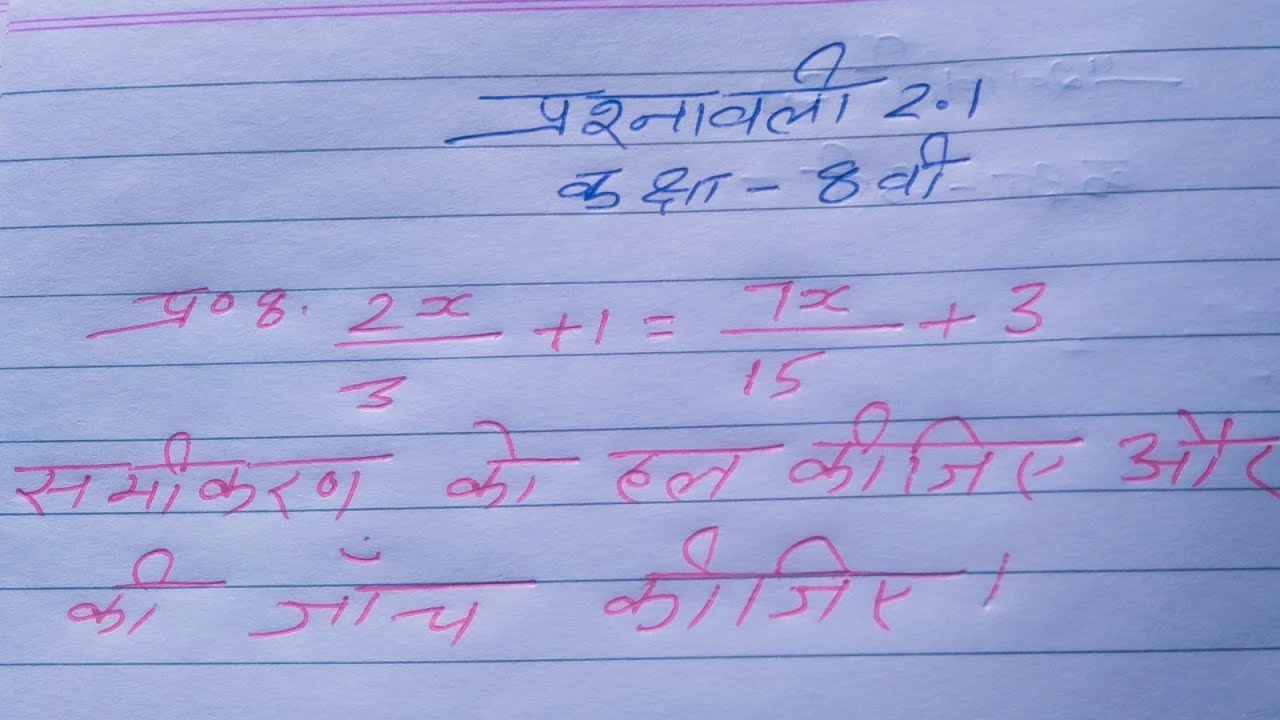 प्रश्नावली 2.1
कक्षा - 8वी
प्र० 8. 2x/3 + 1 = 7x/15 + 3
समीकरण को हल कीजिए और
की जाँच कीजिए।